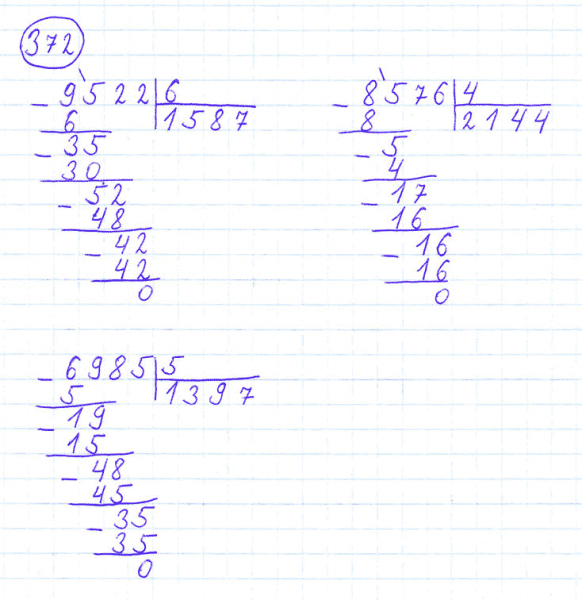 372
9522 6
- 6 1587
35
- 30
52
- 48
42
- 42
0
8576 4
- 8 2144
5
- 4
17
- 16
16
- 16
0
6985 5
- 5 1397
19
- 15
48
- 45
35
- 35
0